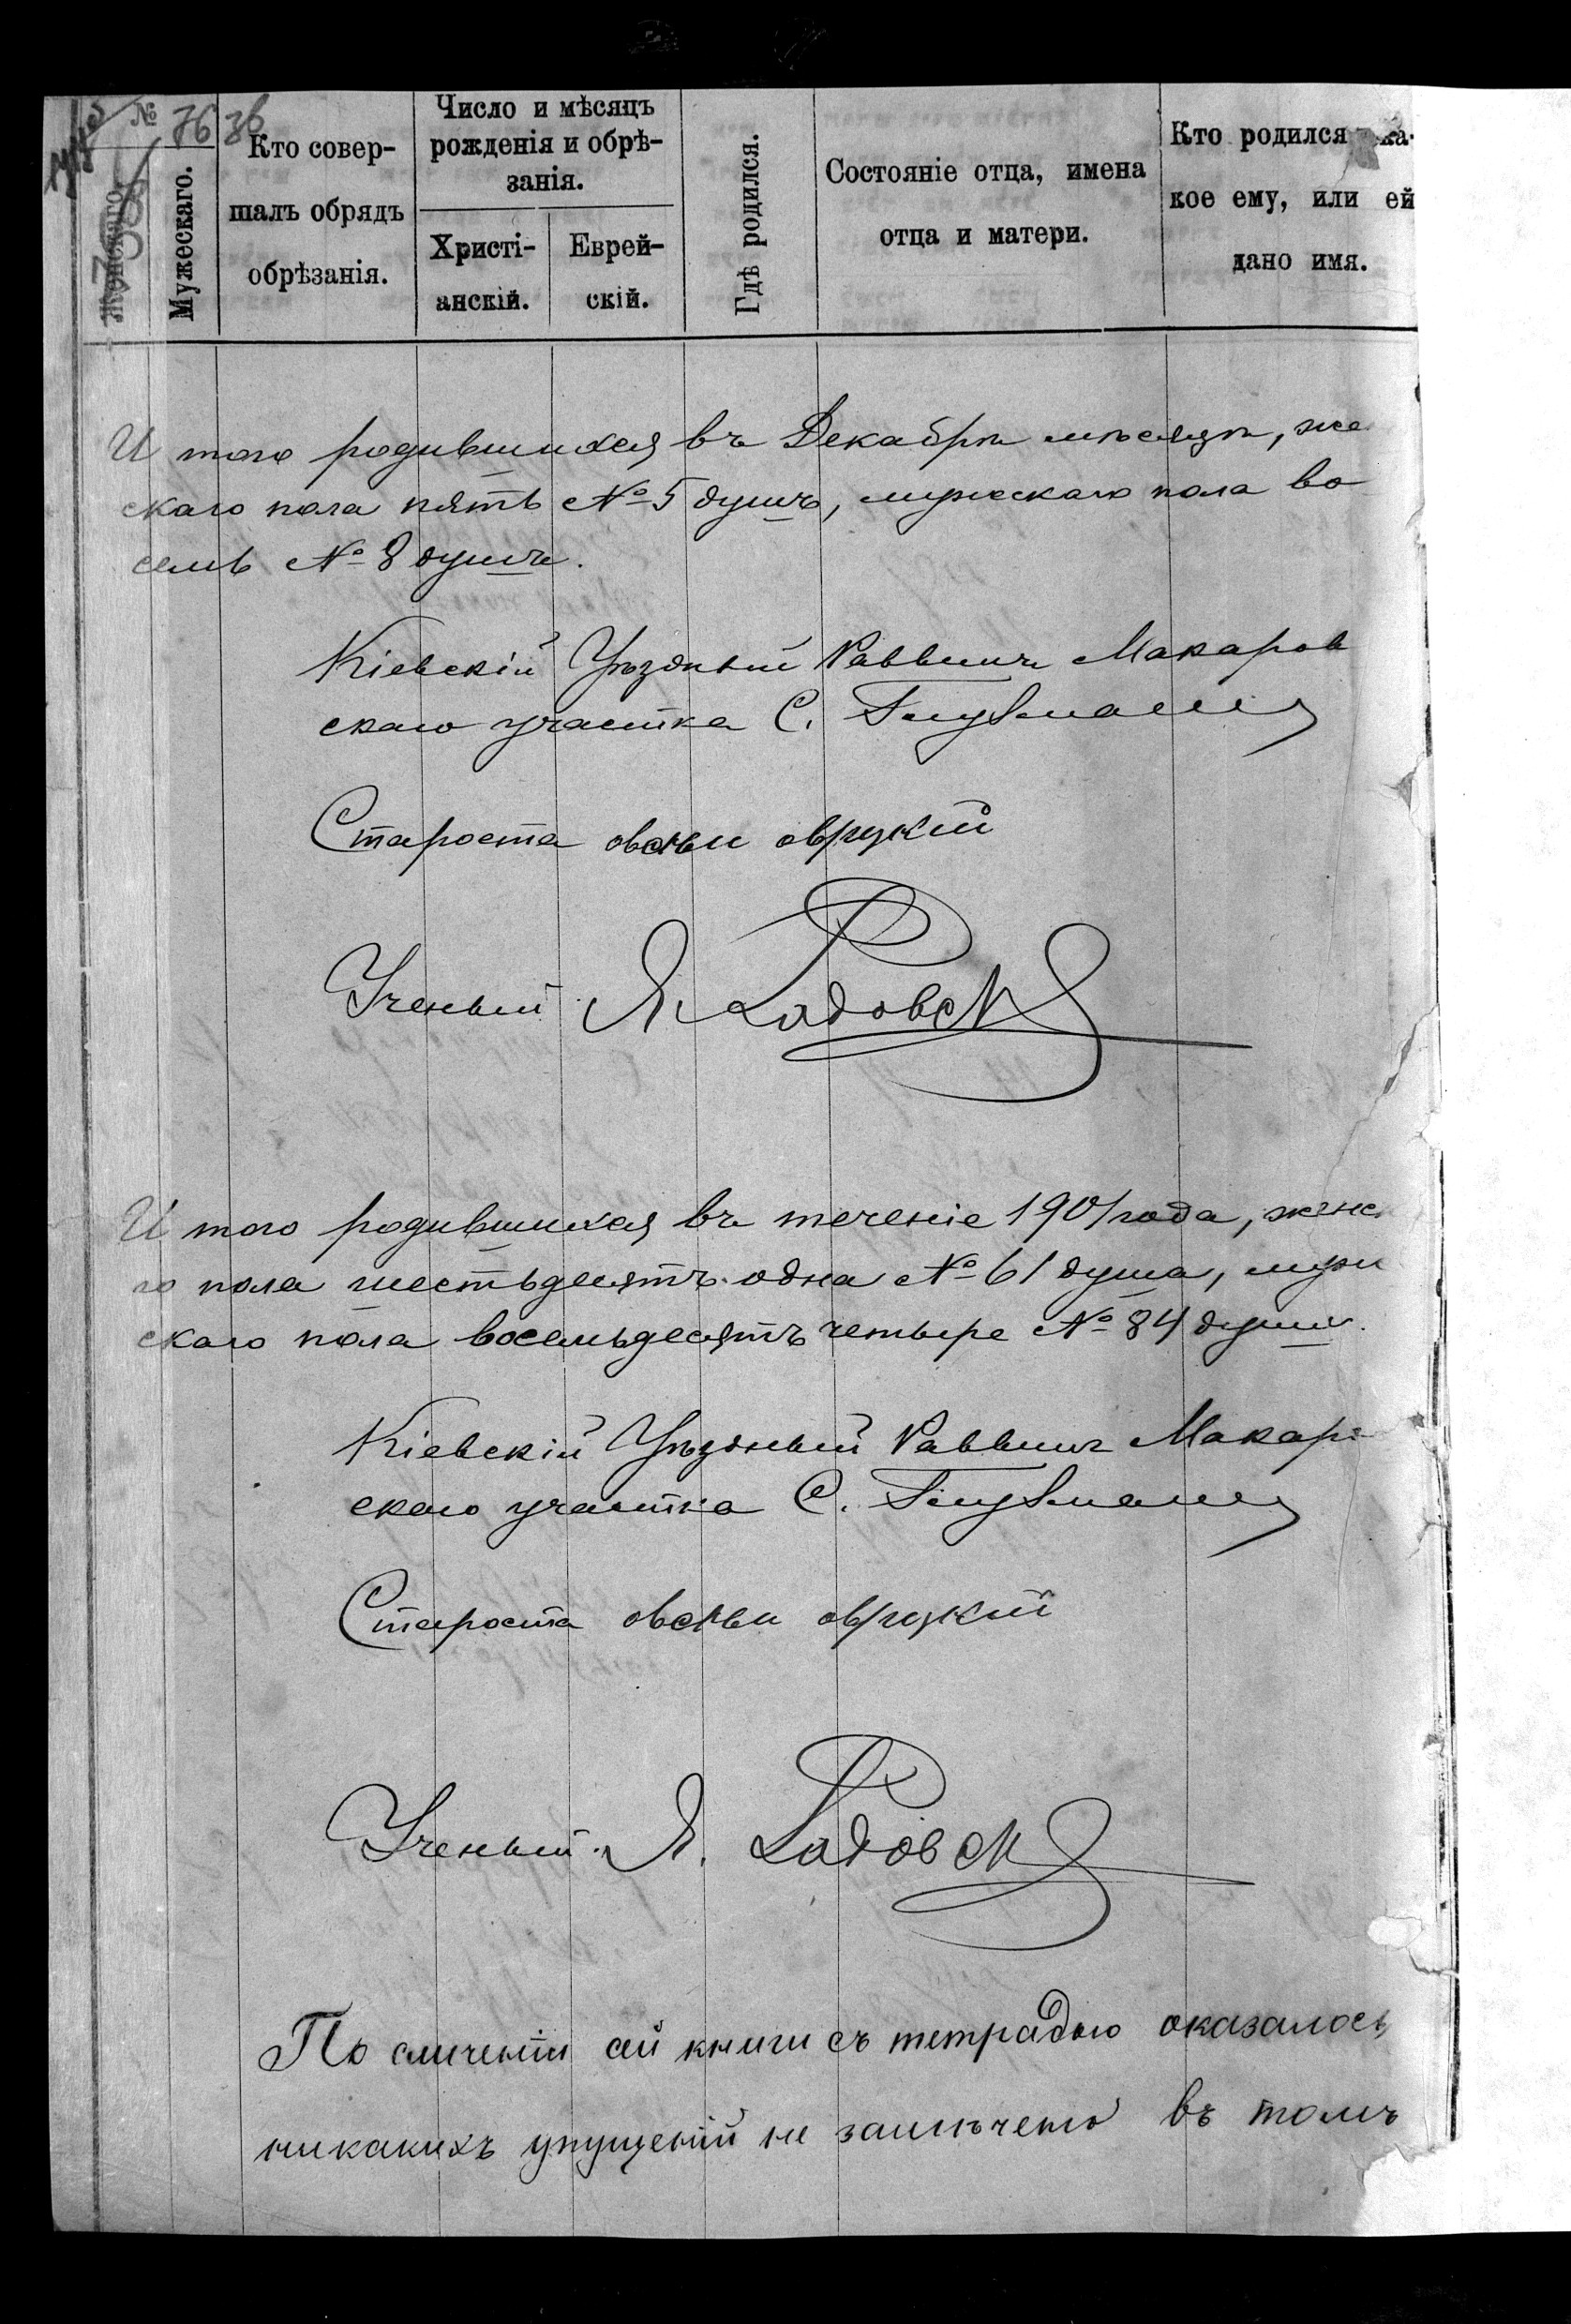 № 76 36
Женскаго.
Мужескаго.
Кто совер-
шалъ обрядъ
обрѣзанія.
Число и мѣсяцъ
рожденія и обрѣ-
занія.
Христі-
анскій.
Еврей-
скій.
Гдѣ родился.
Состояніе отца, имена
отца и матери.
Кто родился ка-
кое ему, или ей
дано имя.
И того родившихся въ Декабрѣ мѣсяцѣ, же
скаго пола пять № 5 душъ, мужескаго пола во
семь № 8 душъ.
Кіевскій Уѣздный Раввинъ Макаров
скаго участка С.
Староста овсѣи овруцкій
Ученый Я. Радовск
И того родившихся въ теченіе 1901 года, женс
го пола шестьдесятъ одна № 61 душа, муже
скаго пола восемьдесятъ четыре № 84 душъ.
Кіевскій Уѣздный Раввинъ Макаро
скаго участка С.
Староста овсѣи овруцкій
Ученый Я. Радовск
По сличеніи сей книги съ тетрадью оказалось
никакихъ упущеній не замѣчено въ томъ